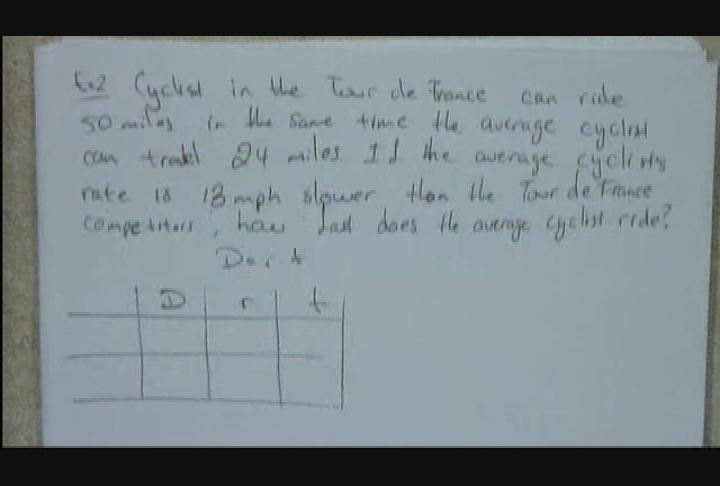 Ex2 Cyclist in the Tour de France can ride
50 miles in the same time the average cyclist
can travel 24 miles. If the average cyclists
rate is 13 mph slower than the Tour de France
competitors, how fast does the average cyclist ride?
D = r · t
D r t